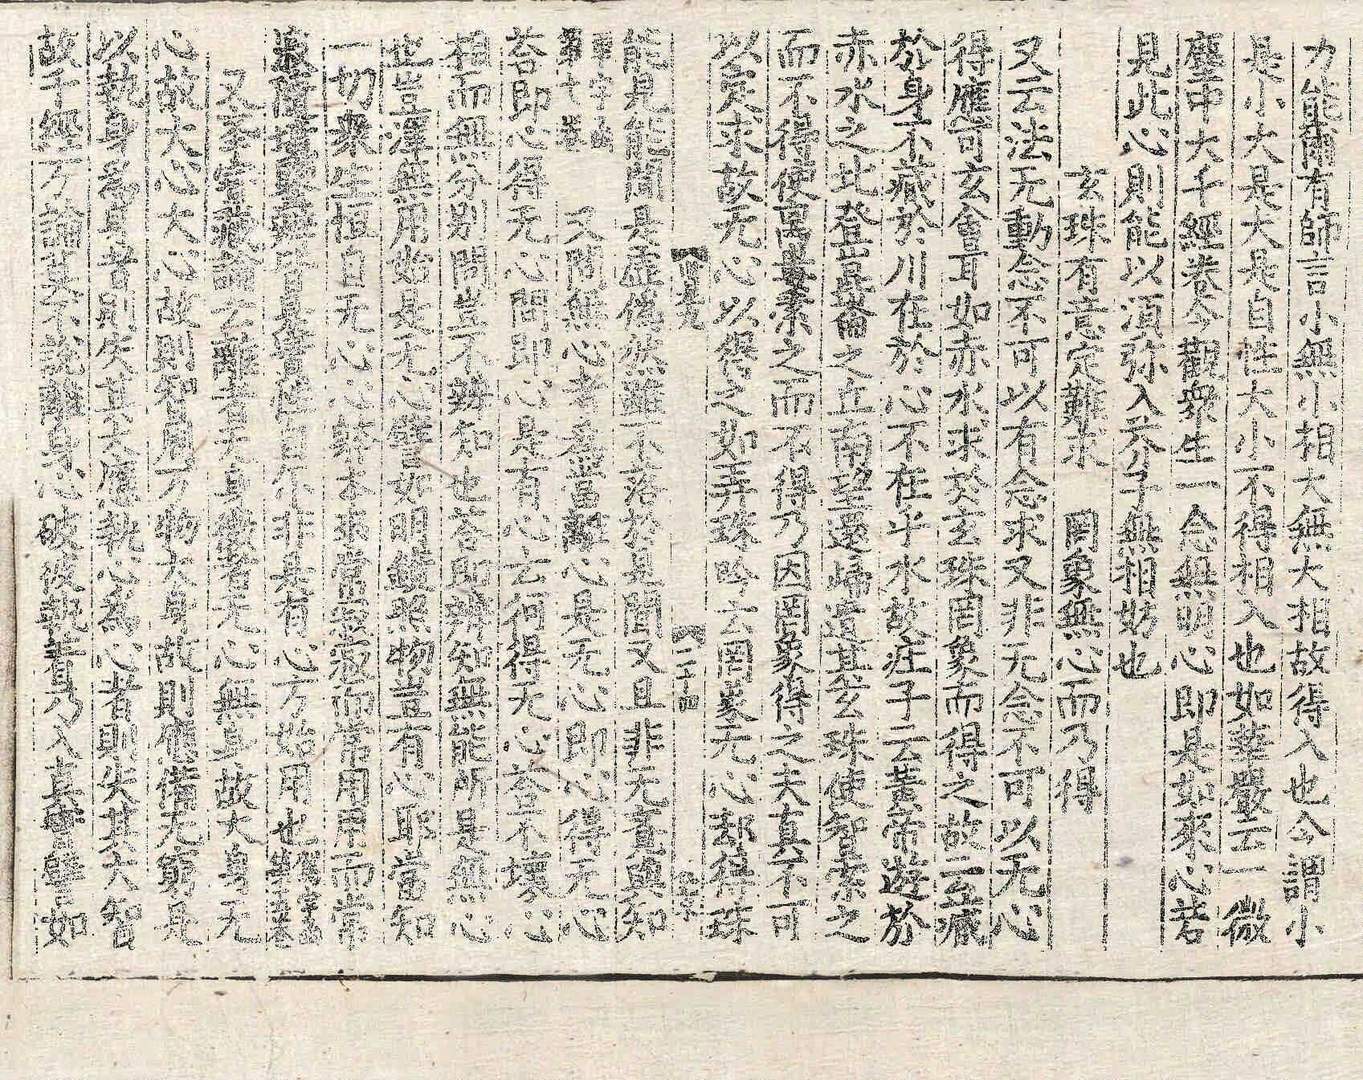 力能爾有師言小無小相大無大相故得入也今謂小
是小大是大是自性大小不得相入也如華嚴云一微
塵中大千經卷今觀衆生一念無明心即是如來心若
見此心則能以須弥入芥子無相妨也
玄珠有意定難求 罔象無心而乃得
又云法无動念不可以有念求又非无念不可以无心
得應可玄會耳如赤水求於玄珠罔象而得之故二五藏
於身不藏於川在於心不在乎水故庄子云黄帝遊於
赤水之北登崑崙之丘南望還歸遺其玄珠使智索之
而不得使离婁索之而不得乃因罔象得之夫真不可
以定求故无心以得之如弄珠吟云罔象无心却得珠
二十四
能見能聞是虛偽然雖不落於見聞又且非无意與知
又問無心者為當離心是无心即心得无心
荅即心得无心問即心是有心云何得无心荅不壞心
相而無分別問豈不辨知也荅即辨知無能所是無心
也豈渾無用始是无心譬如明鏡照物豈有心耶當知
一切衆生恒自无心心躰本來常寂寂而常用用而常
寂隨境鑒辨皆是實性自尒非是有心方始用也
又奉宝藏論云離者无身微者无心無身故大身无
心故大心大心故則智周万物大身故則應備无窮是
以執身為身者則失其大應執心為心者則失其大智
故千經万論莫不說離身心破彼執著乃入真實譬如